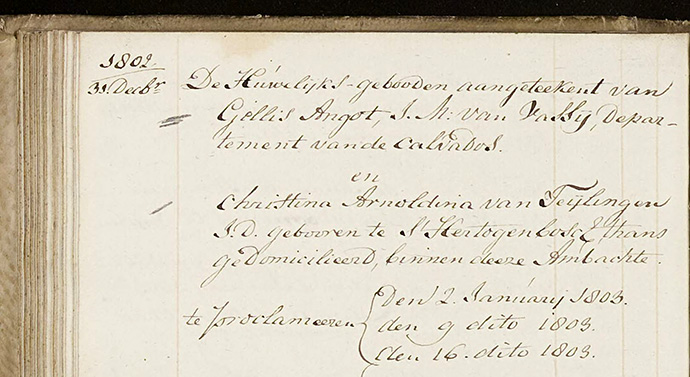 1802
31. Decbr
De Húwelijks-gebooden aangeteekent van
Gillis Angot, J. M: van Vassÿ, Depar-
tement van de Calvados.
en
Christina Arnoldina van Teÿlingen
J. D. gebooren te s'Hertogenbosch & thans
gedomicilieerd, binnen deeze Ambachte.
te proclameeren
Den 2. Janúarij 1803.
den 9 dito 1803.
den 16. dito 1803.